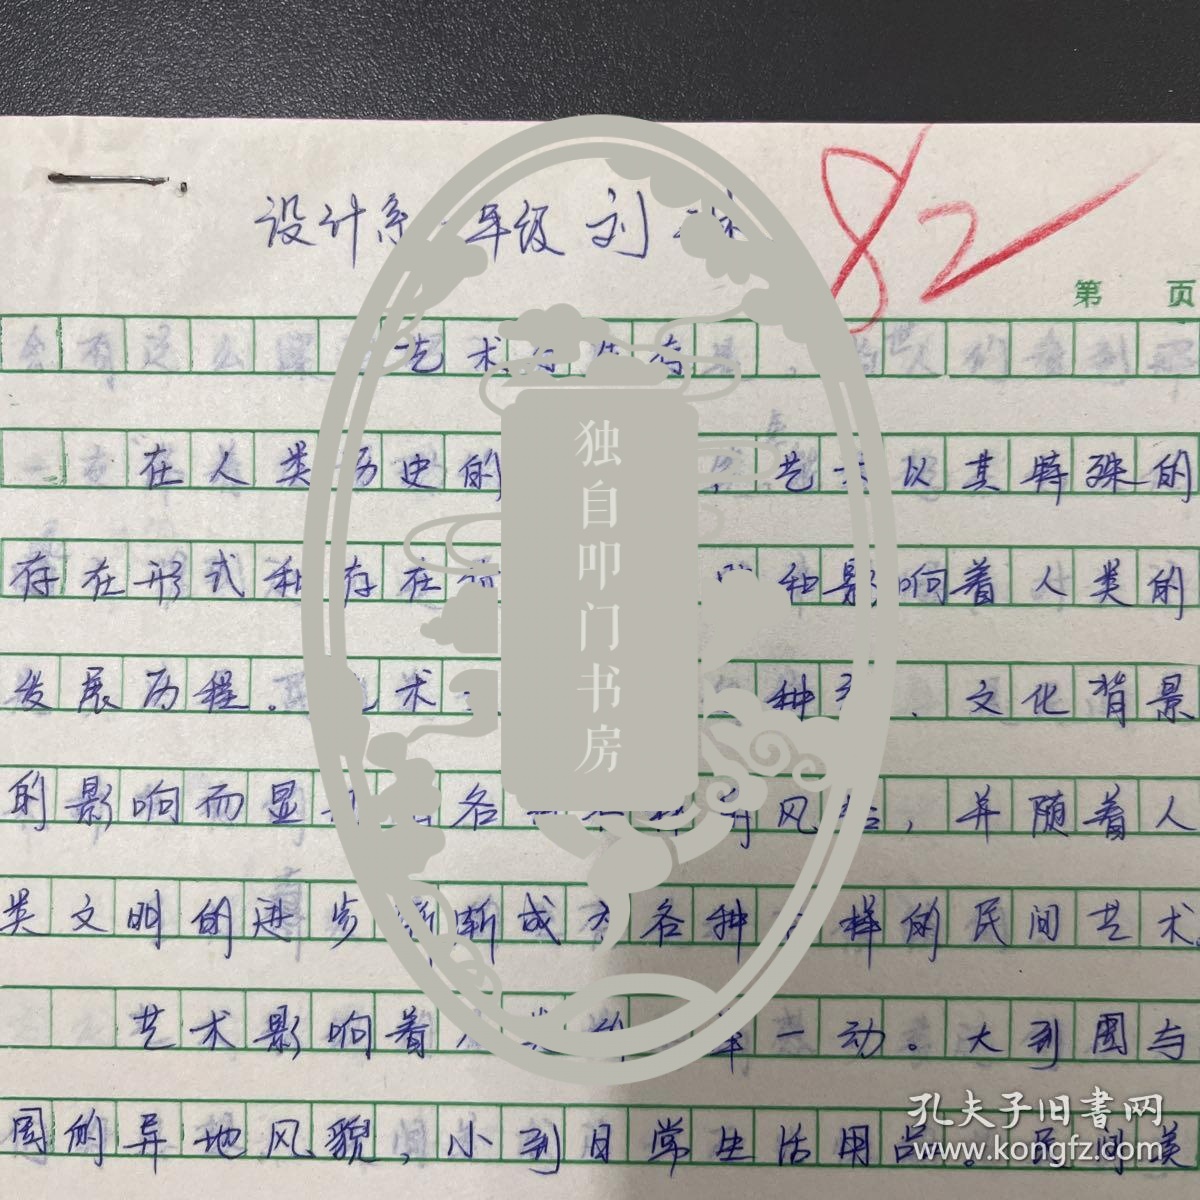 设计系 年级 刘
82
第 页
艺术与生活
在人类历史的 ，艺术以其特殊的
存在形式和存在 和影响着人类的
发展历程。艺术 种 、文化背景
的影响而显 各 风格，并随着人
类文明的进步渐渐成为各种 样的民间艺术。
艺术影响着人类的一举一动。大到国与
国的异地风貌，小到日常生活用品。民间美
独自叩门书房
孔夫子旧书网
www.kongfz.com